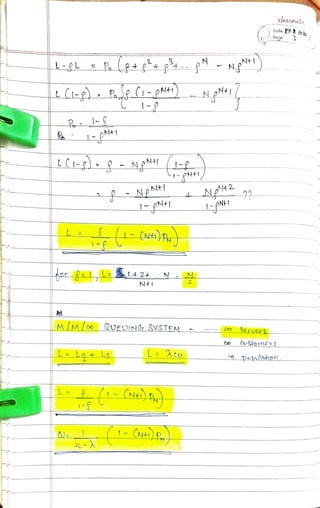 classmate
Date
Page 3
L-ρL = P₀ (ρ + ρ² + ρ³ + .. ρᴺ - Nρᴺ⁺¹)
L(1-ρ) = P₀ { ρ (1-ρᴺ⁺¹) / 1-ρ - Nρᴺ⁺¹ }
P₀ = 1-ρ / 1-ρᴺ⁺¹
L(1-ρ) = ρ - Nρᴺ⁺¹ (1-ρ / 1-ρᴺ⁺¹)
= ρ - Nρᴺ⁺¹ / 1-ρᴺ⁺¹ + Nρᴺ⁺² / 1-ρᴺ⁺¹ ??
L = ρ / 1-ρ (1 - (N+1) Pɴ)
for ρ=1, L = 1+2+ .. N / N+1 = N / 2
M/M/∞ QUEUING SYSTEM - ∞ servers
∞ customers
L = Lq + Ls L = λω ∞ population
L = ρ / 1-ρ (1 - (N+1) Pɴ)
ω = 1 / μ-λ (1 - (N+1) Pɴ)